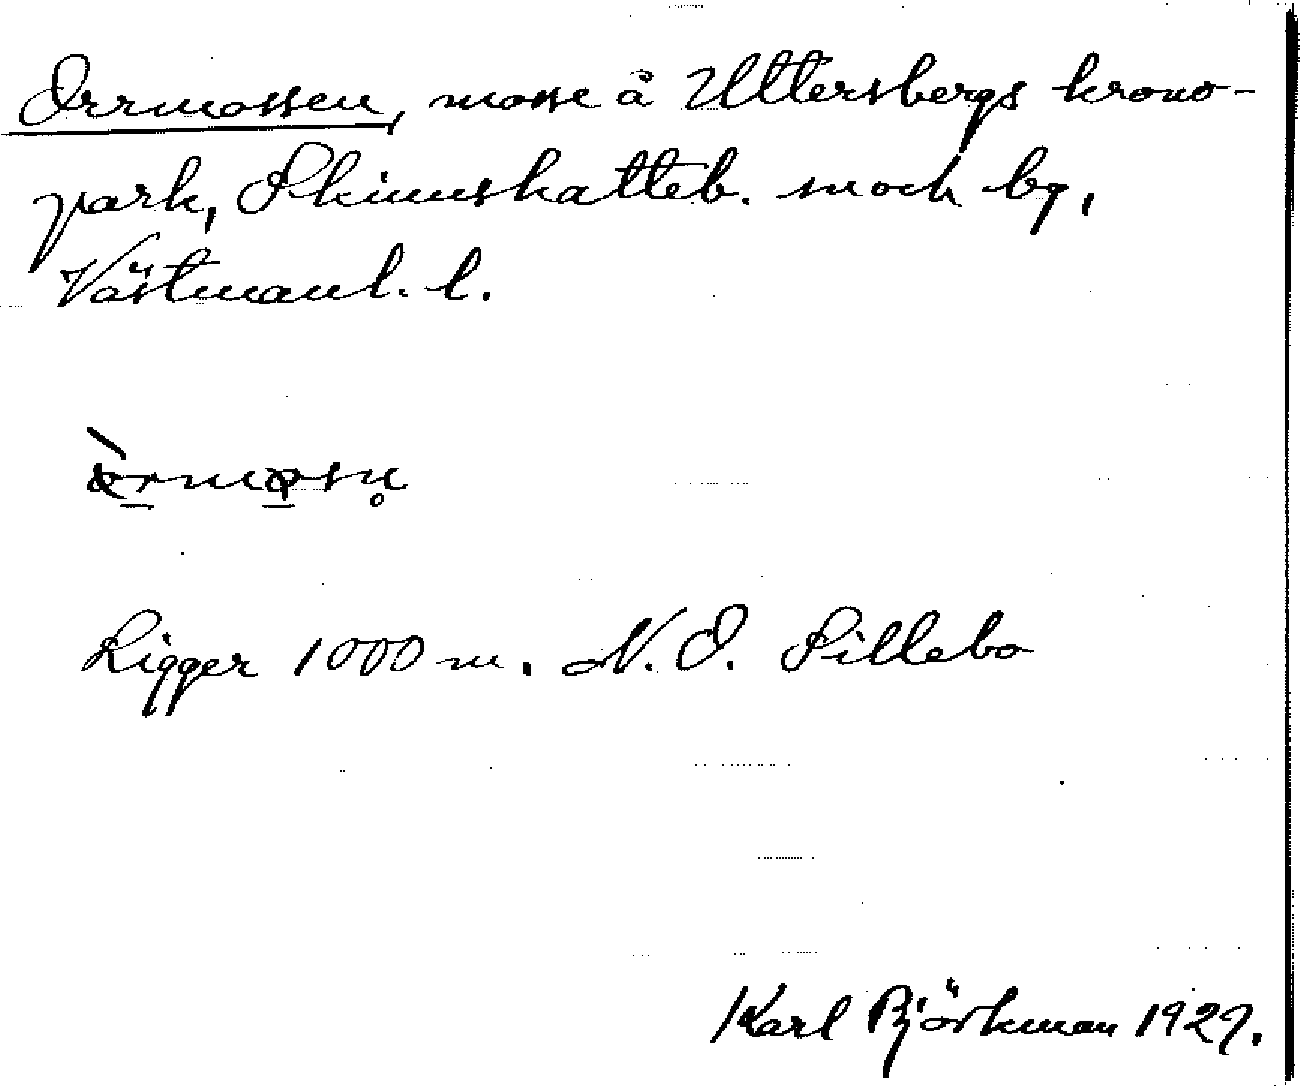 Orrmossen, mosse å Uttersbergs krono-
park, Skinnskatteb. sn och bg,
Västmanl. l.
Ligger 1000 m. N. O. Sillebo
Karl Björkman 1927.